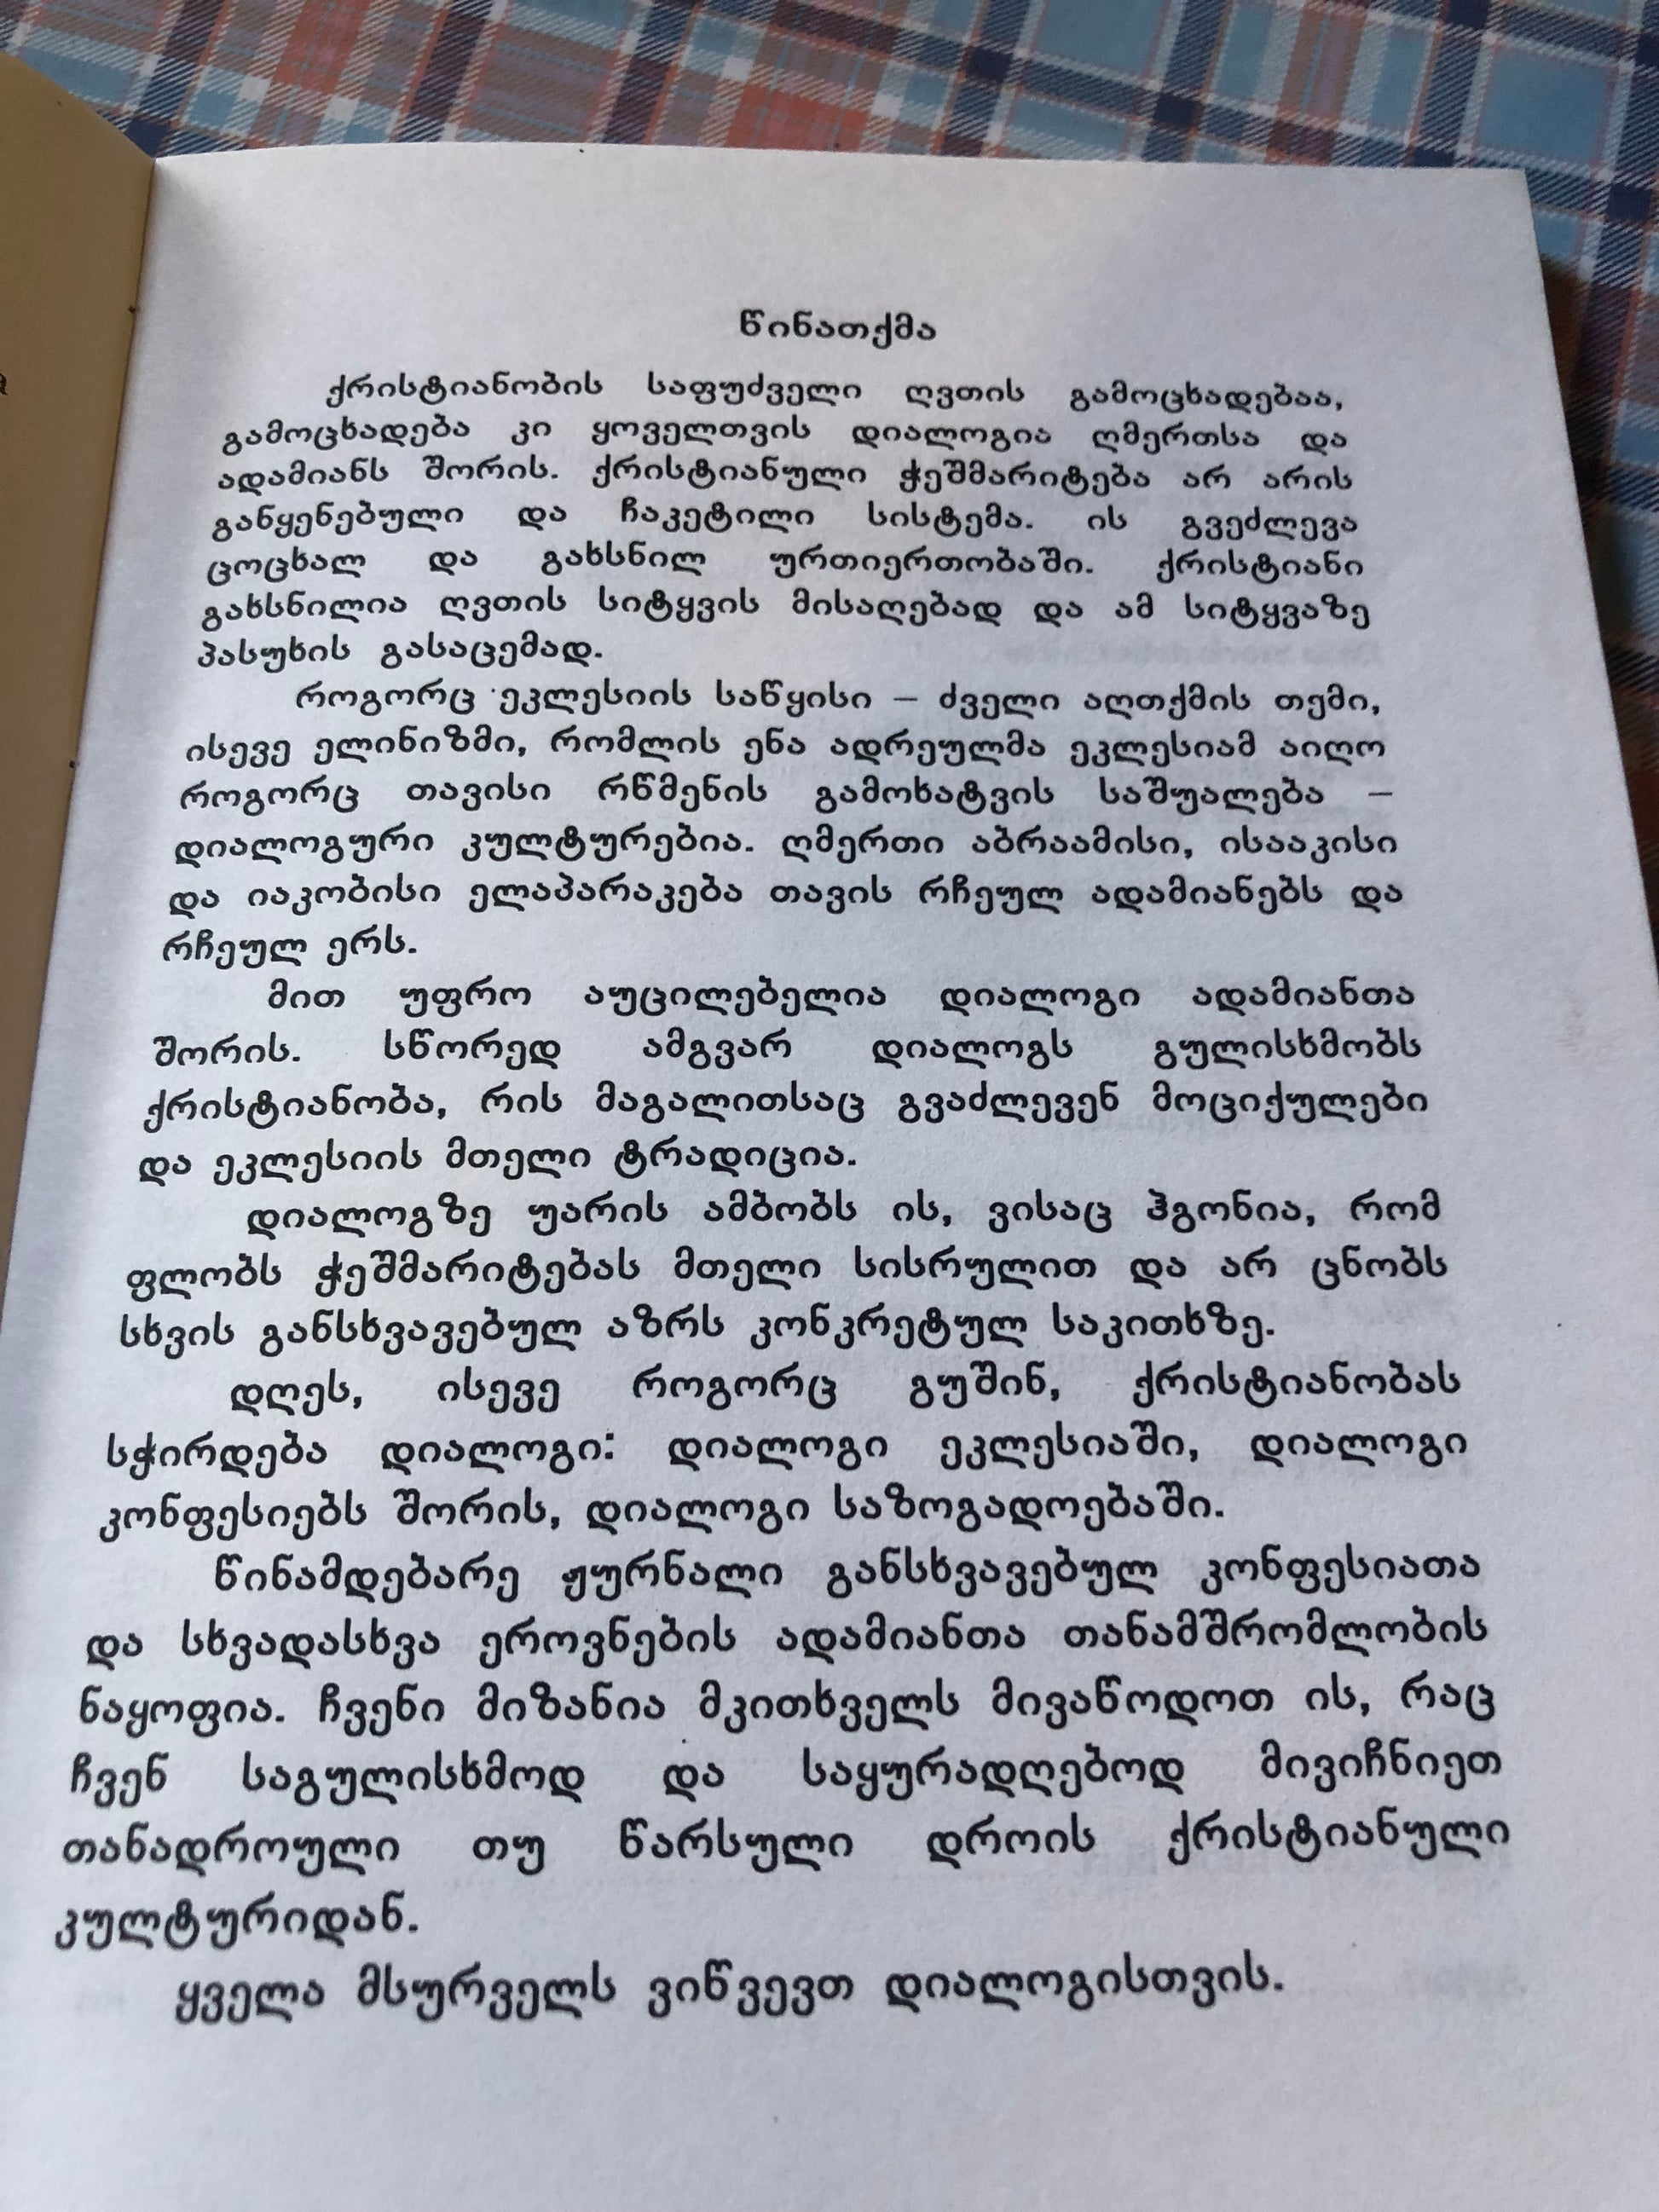 წინათქმა
ქრისტიანობის საფუძველი ღვთის გამოცხადებაა,
გამოცხადება კი ყოველთვის დიალოგია ღმერთსა და
ადამიანს შორის. ქრისტიანული ჭეშმარიტება არ არის
განყენებული და ჩაკეტილი სისტემა. ის გვეძლევა
ცოცხალ და გახსნილ ურთიერთობაში. ქრისტიანი
გახსნილია ღვთის სიტყვის მისაღებად და ამ სიტყვაზე
პასუხის გასაცემად.
როგორც ეკლესიის საწყისი – ძველი აღთქმის თემი,
ისევე ელინიზმი, რომლის ენა ადრეულმა ეკლესიამ აიღო
როგორც თავისი რწმენის გამოხატვის საშუალება –
დიალოგური კულტურებია. ღმერთი აბრაამისი, ისააკისი
და იაკობისი ელაპარაკება თავის რჩეულ ადამიანებს და
რჩეულ ერს.
მით უფრო აუცილებელია დიალოგი ადამიანთა
შორის. სწორედ ამგვარ დიალოგს გულისხმობს
ქრისტიანობა, რის მაგალითსაც გვაძლევენ მოციქულები
და ეკლესიის მთელი ტრადიცია.
დიალოგზე უარის ამბობს ის, ვისაც ჰგონია, რომ
ფლობს ჭეშმარიტებას მთელი სისრულით და არ ცნობს
სხვის განსხვავებულ აზრს კონკრეტულ საკითხზე.
დღეს, ისევე როგორც გუშინ, ქრისტიანობას
სჭირდება დიალოგი: დიალოგი ეკლესიაში, დიალოგი
კონფესიებს შორის, დიალოგი საზოგადოებაში.
წინამდებარე ჟურნალი განსხვავებულ კონფესიათა
და სხვადასხვა ეროვნების ადამიანთა თანამშრომლობის
ნაყოფია. ჩვენი მიზანია მკითხველს მივაწოდოთ ის, რაც
ჩვენ საგულისხმოდ და საყურადღებოდ მივიჩნიეთ
თანადროული თუ წარსული დროის ქრისტიანული
კულტურიდან.
ყველა მსურველს ვიწვევთ დიალოგისთვის.